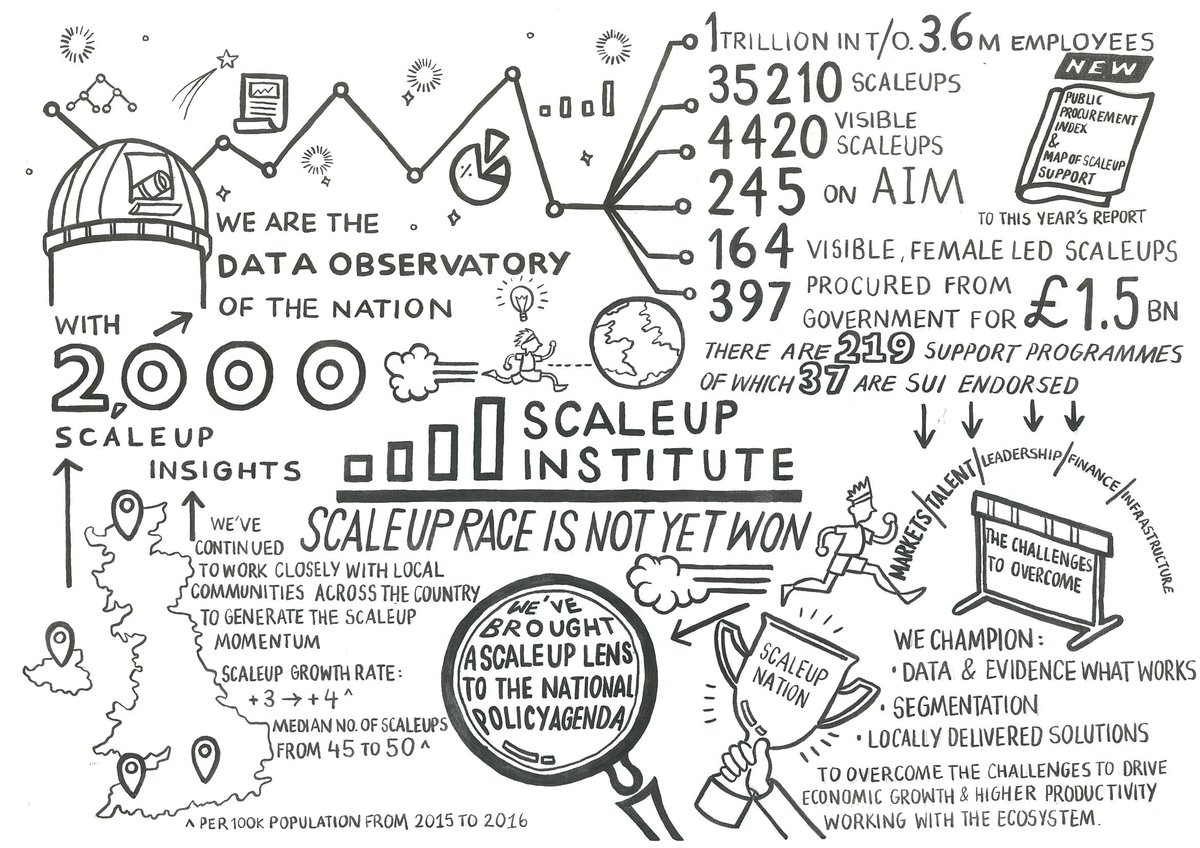 1 TRILLION IN T/O. 3.6 M EMPLOYEES
35210 SCALEUPS
4420 VISIBLE SCALEUPS
245 ON AIM
164 VISIBLE, FEMALE LED SCALEUPS
397 PROCURED FROM
GOVERNMENT FOR £1.5 BN
THERE ARE 219 SUPPORT PROGRAMMES
OF WHICH 37 ARE SUI ENDORSED
NEW
PUBLIC
PROCUREMENT
INDEX
&
MAP OF SCALEUP
SUPPORT
TO THIS YEAR'S REPORT
%
WE ARE THE
DATA OBSERVATORY
OF THE NATION
WITH
2,000
SCALEUP
INSIGHTS
SCALEUP
INSTITUTE
SCALEUP RACE IS NOT YET WON
WE'VE
CONTINUED
TO WORK CLOSELY WITH LOCAL
COMMUNITIES ACROSS THE COUNTRY
TO GENERATE THE SCALEUP
MOMENTUM
SCALEUP GROWTH RATE:
+3 → +4 ^
MEDIAN NO. OF SCALEUPS
FROM 45 TO 50 ^
^ PER 100K POPULATION FROM 2015 TO 2016
WE'VE
BROUGHT
A SCALEUP LENS
TO THE NATIONAL
POLICY AGENDA
SCALEUP
NATION
MARKETS/TALENT/LEADERSHIP/FINANCE/INFRASTRUCTURE
THE CHALLENGES
TO OVERCOME
WE CHAMPION:
• DATA & EVIDENCE WHAT WORKS
• SEGMENTATION
• LOCALLY DELIVERED SOLUTIONS
TO OVERCOME THE CHALLENGES TO DRIVE
ECONOMIC GROWTH & HIGHER PRODUCTIVITY
WORKING WITH THE ECOSYSTEM.